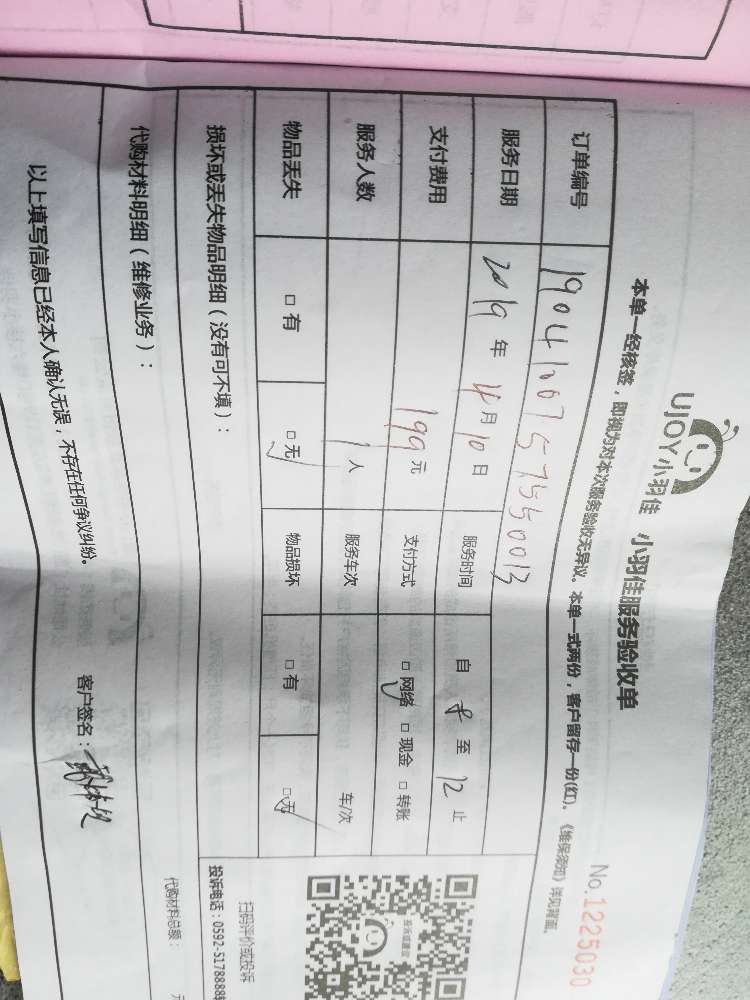 UJOY小羽佳 小羽佳服务验收单
No.1225030
本单一经核签，即视为对本次服务验收无异议。本单一式两份，客户留存一份(红)。《维保须知》详见背面。
订单编号 190410075755550013
服务日期 2019年4月10日 服务时间 自 8 至 12 止
支付费用 199元 支付方式 □网络 □现金 □转账
服务人数 1人 服务车次 车/次
物品丢失 □有 □无 物品损坏 □有 □无
损坏或丢失物品明细（没有可不填）：
扫码评价或投诉
投诉电话：0592-5178888
代购材料明细（维修业务）：
代购材料总额： 元
以上填写信息已经本人确认无误，不存在任何争议纠纷。
客户签名：